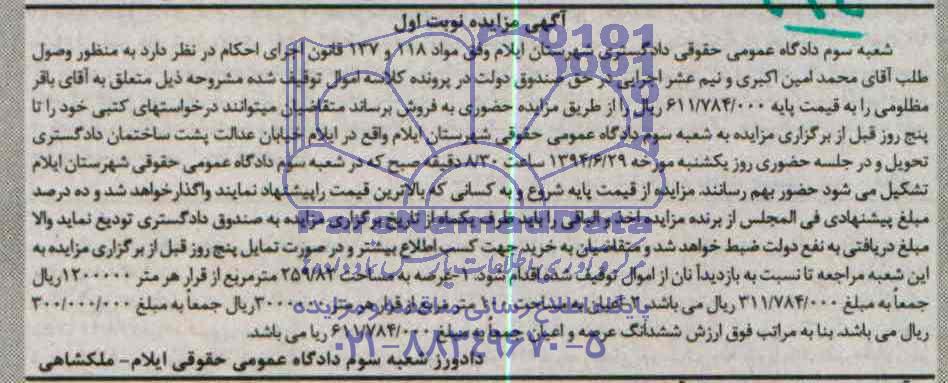 آگهی مزایده نوبت اول
شعبه سوم دادگاه عمومی حقوقی دادگستری شهرستان ایلام وفق مواد ۱۱۸ و ۱۳۷ قانون اجرای احکام در نظر دارد به منظور وصول
طلب آقای محمد امین اکبری و نیم عشر اجرایی در حق صندوق دولت در پرونده کلاسه اموال توقیف شده مشروحه ذیل متعلق به آقای باقر
مظلومی را به قیمت پایه ۶۱۱/۷۸۴/۰۰۰ ریال را از طریق مزایده حضوری به فروش برساند متقاضیان میتوانند درخواستهای کتبی خود را تا
پنج روز قبل از برگزاری مزایده به شعبه سوم دادگاه عمومی حقوقی شهرستان ایلام واقع در ایلام خیابان عدالت پشت ساختمان دادگستری
تحویل و در جلسه حضوری روز یکشنبه مورخه ۱۳۹۴/۶/۲۹ ساعت ۸/۳۰ دقیقه صبح که در شعبه سوم دادگاه عمومی حقوقی شهرستان ایلام
تشکیل می شود حضور بهم رسانند. مزایده از قیمت پایه شروع و به کسانی که بالاترین قیمت راپیشنهاد نمایند واگذارخواهد شد و ده درصد
مبلغ پیشنهادی فی المجلس از برنده مزایده اخذ و الباقی را باید ظرف یکماه از تاریخ برگزاری مزایده به صندوق دادگستری تودیع نماید والا
مبلغ دریافتی به نفع دولت ضبط خواهد شد و متقاضیان به خرید جهت کسب اطلاع بیشتر و در صورت تمایل پنج روز قبل از برگزاری مزایده به
این شعبه مراجعه تا نسبت به بازدید آنان از اموال توقیف شده اقدام شود. ۱-عرصه به مساحت ۲۵۹/۸۲ مترمربع از قرار هر متر ۱۲۰۰۰۰۰ریال
جمعاً به مبلغ ۳۱۱/۷۸۴/۰۰۰ ریال می باشد. ۲-اعیان به مساحت متر مربع از قرار هر متر ریال جمعاً به مبلغ ۳۰۰/۰۰۰/۰۰۰
ریال می باشد. بنا به مراتب فوق ارزش ششدانگ عرصه و اعیان جمعا به مبلغ ۶۱۱/۷۸۴/۰۰۰ ریا می باشد.
دادورز شعبه سوم دادگاه عمومی حقوقی ایلام- ملکشاهی
پایگاه اطلاع رسانی مناقصه و مزایده
۰۲۱-۸۸۳۴۹۶۷۰-۵